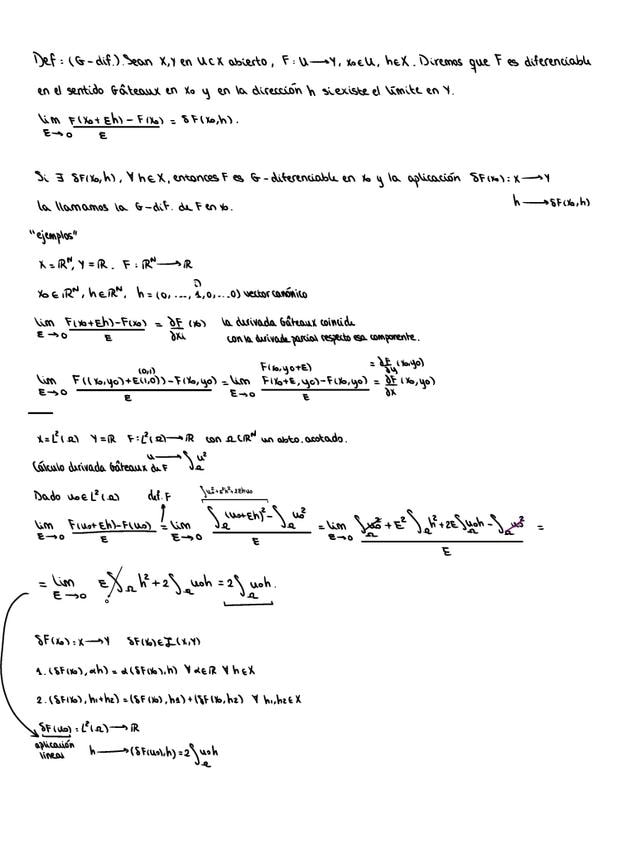 Def: (G-dif.). Sean X,Y en U⊂X abierto, F: U→Y, x₀∈U, h∈X. Diremos que F es diferenciable
en el sentido Gâteaux en x₀ y en la dirección h si existe el límite en Y.
lim_{ε→0} (F(x₀+εh) − F(x₀))/ε = δF(x₀,h).
Si ∃ δF(x₀,h), ∀h∈X, entonces F es G-diferenciable en x₀ y la aplicación δF(x₀): X→Y
h→δF(x₀,h)
la llamamos la G-dif. de F en x₀.
"ejemplos"
X=ℝᴺ, Y=ℝ. F: ℝᴺ→ℝ
x₀∈ℝᴺ, h∈ℝᴺ, h=(0,...,1,0,...0) vector canónico
lim_{ε→0} (F(x₀+εh)−F(x₀))/ε = ∂F/∂xᵢ (x₀) la derivada Gâteaux coincide
con la derivada parcial respecto esa componente.
(0,1) F(x₀,y₀+ε) = ∂F/∂y (x₀,y₀)
lim_{ε→0} (F((x₀,y₀)+ε(1,0))−F(x₀,y₀))/ε = lim_{ε→0} (F(x₀+ε,y₀)−F(x₀,y₀))/ε = ∂F/∂x (x₀,y₀)
X=L²(Ω) Y=ℝ F: L²(Ω)→ℝ con Ω⊂ℝᴺ un abto. acotado.
u→∫_Ω u²
Cálculo derivada Gâteaux de F
Dado u₀∈L²(Ω) def. F ∫u₀²+ε²h²+2εhu₀
lim_{ε→0} (F(u₀+εh)−F(u₀))/ε = lim_{ε→0} (∫_Ω (u₀+εh)² − ∫_Ω u₀²)/ε = lim_{ε→0} (∫_Ω u₀² + ε²∫_Ω h² + 2ε∫_Ω u₀h − ∫_Ω u₀²)/ε =
= lim_{ε→0} ε∫_Ω h² + 2∫_Ω u₀h = 2∫_Ω u₀h.
0
δF(x₀): X→Y δF(x₀)∈ℒ(X,Y)
1. (δF(x₀),αh) = α(δF(x₀),h) ∀α∈ℝ ∀h∈X
2. (δF(x₀),h₁+h₂) = (δF(x₀),h₁)+(δF(x₀,h₂) ∀h₁,h₂∈X
δF(u₀): L²(Ω)→ℝ
aplicación
lineal h→(δF(u₀),h)=2∫_Ω u₀h